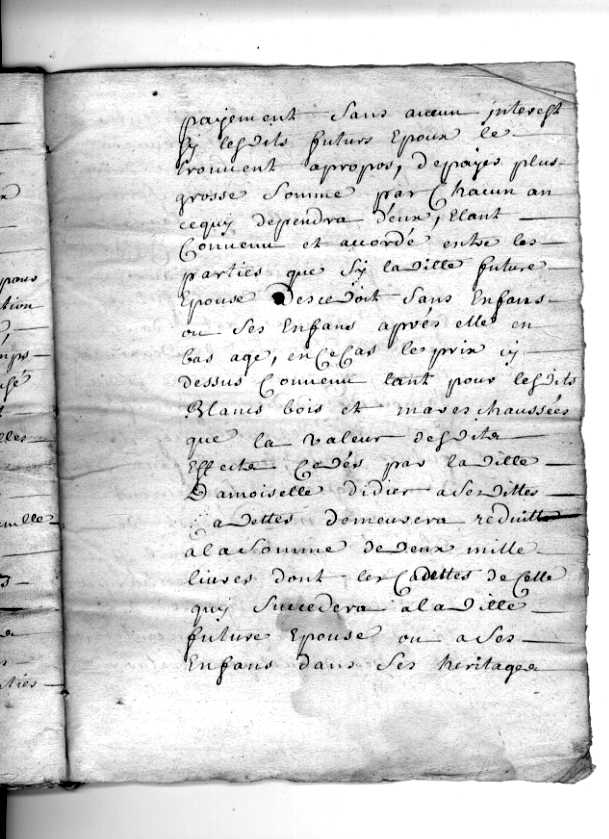 payement sans aucun interest
sy lesdits futurs Epoux le
trouvent apropos, depayer plus
grosse somme par Chacun an
cequy dependra d'eux, Etant
Convenu et accordé entre les
parties que sy laditte future
Epouse Descedoit sans Enfans
ou ses Enfans aprés elle en
bas age, en CeCas le prix cy
dessus Convenu tant pour lesdits
Blancs bois et mareschaussées
que la valeur desdits
Effects Cedés par laditte
Damoiselle didier asesdittes
Cadettes demeurera reduitte
alasomme dedeux mille
livres dont les Cadettes de Celle
quy succedera aladitte
future Epouse ou a ses
Enfans dans ses heritages